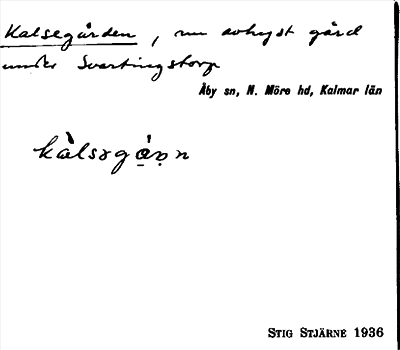 Kalsegården, nu avhyst gård
under Svartingstorp
Åby sn, N. Möre hd, Kalmar län
kàlsəgá̱ṇn
STIG STJÄRNE 1936